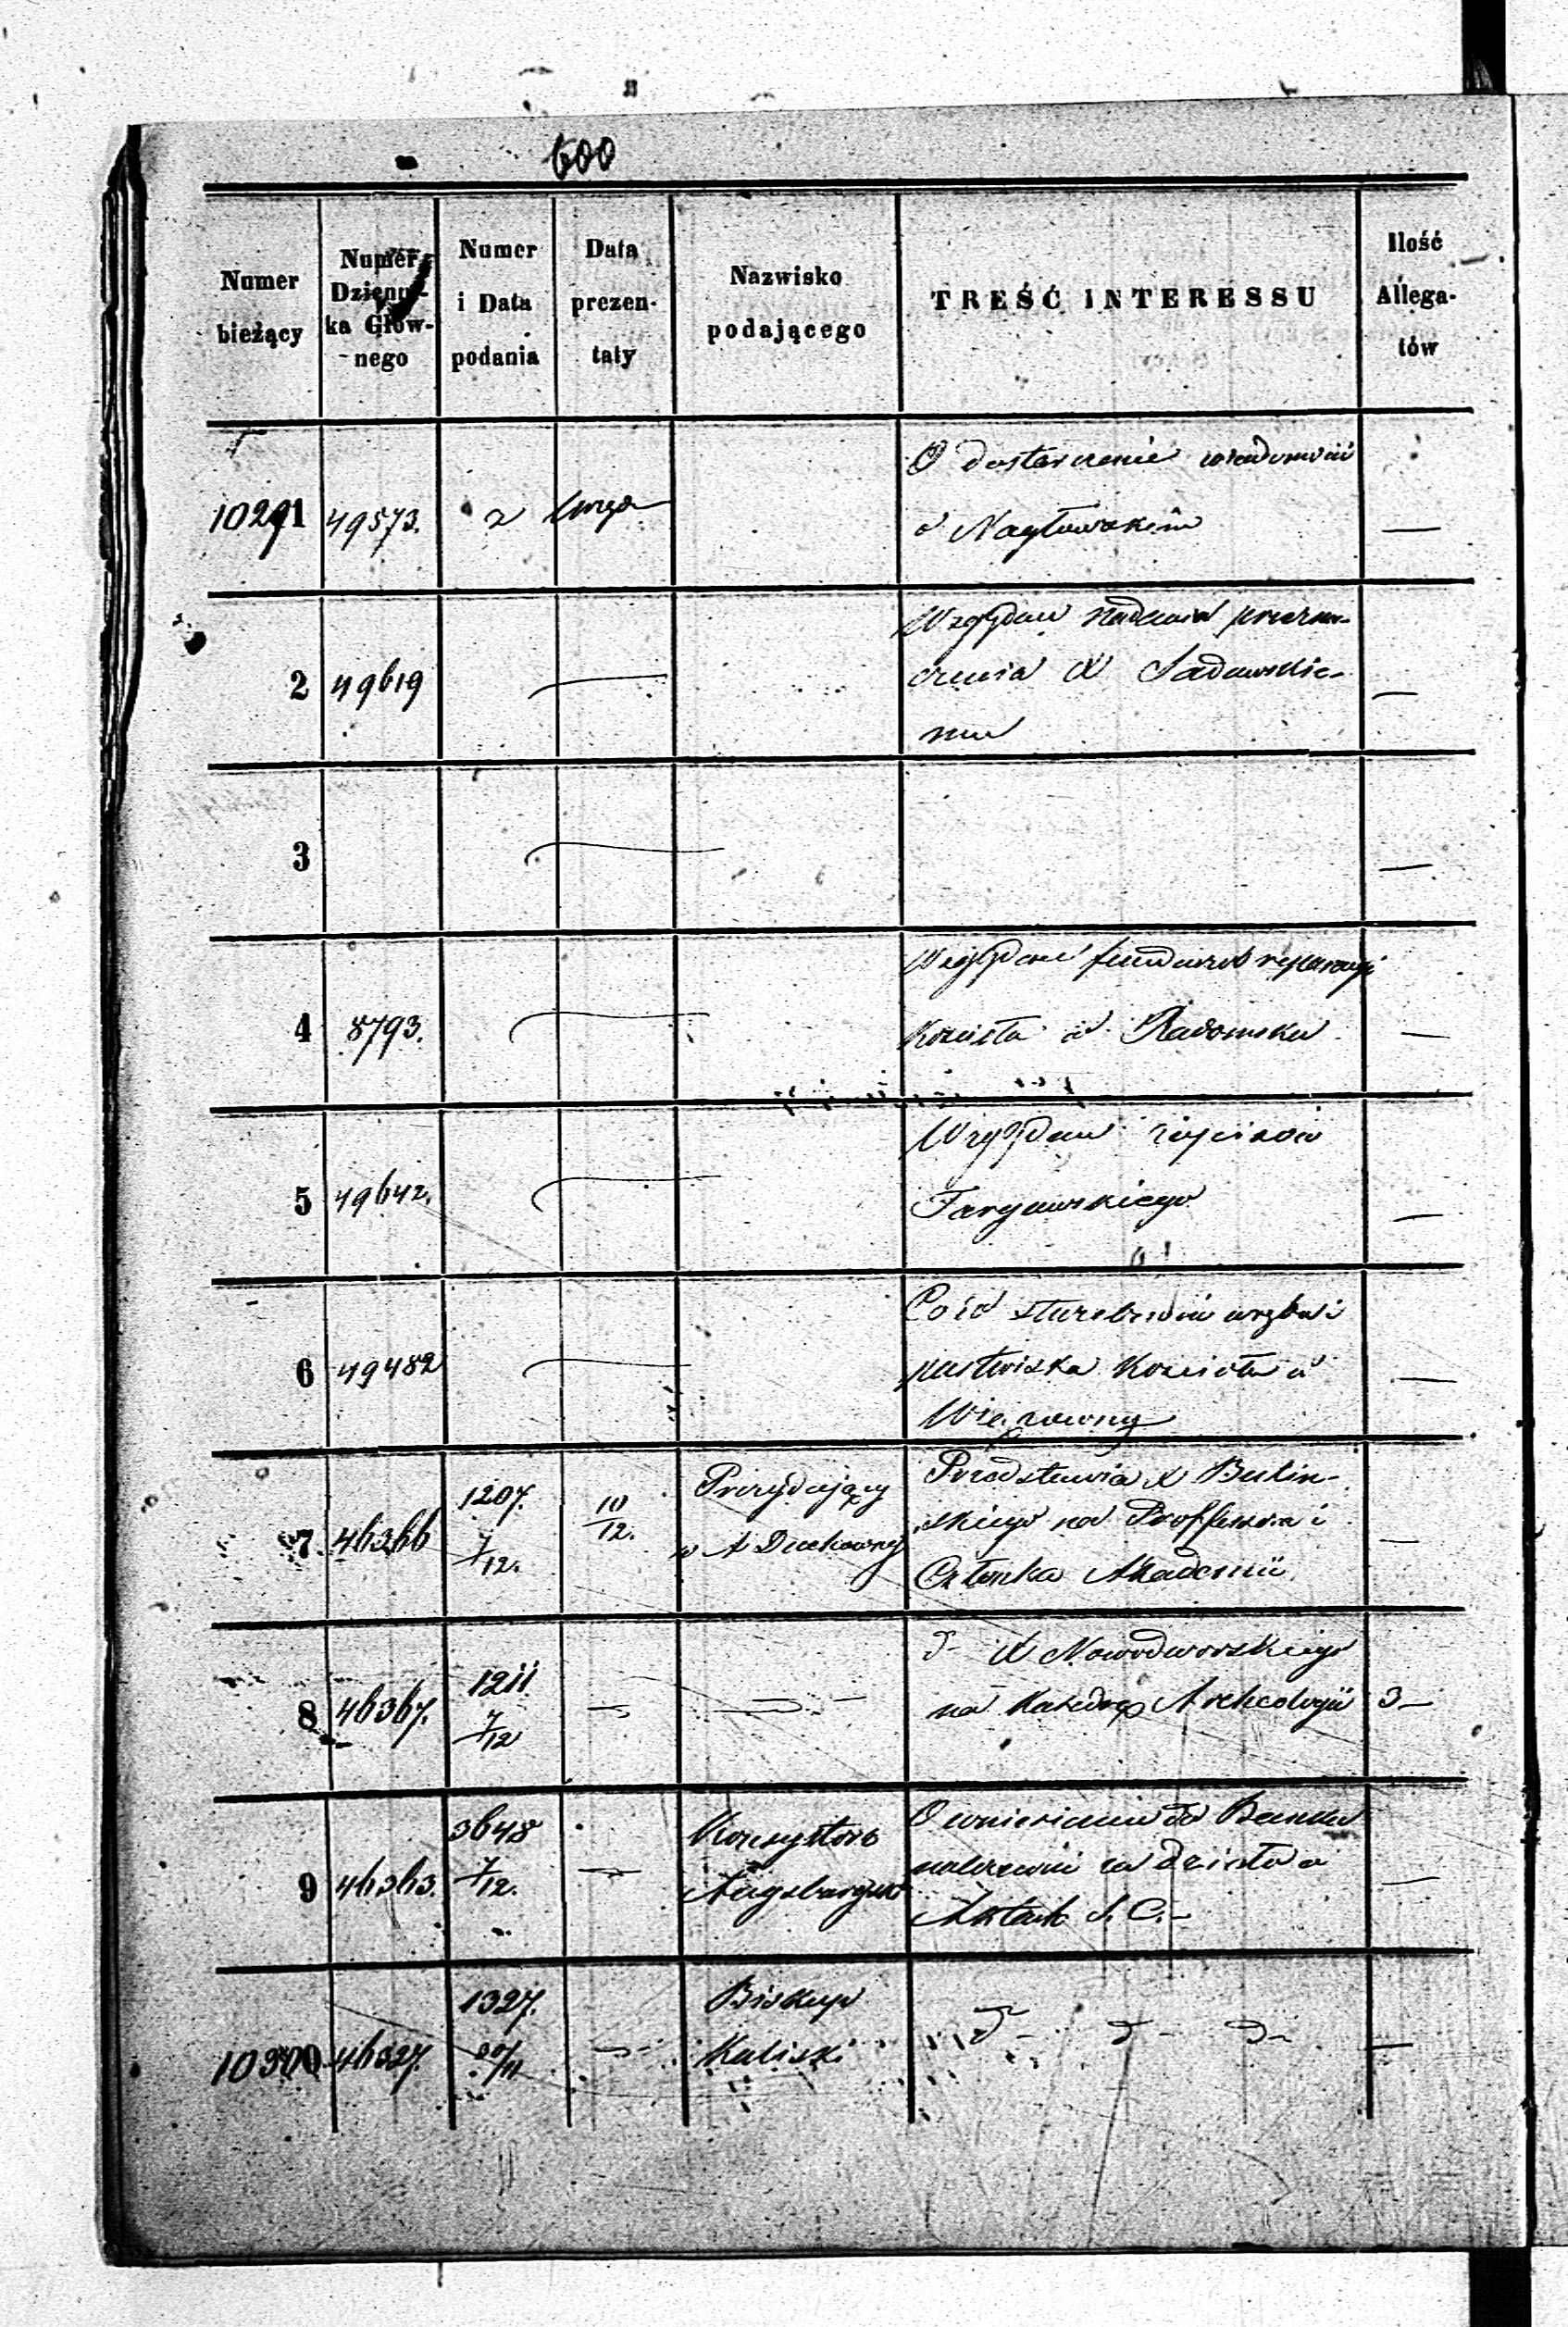 600
Numer bieżący
Numer Dzienni-ka Głów-nego
Numer i Data podania
Data prezen-taty
Nazwisko podającego
TREŚĆ INTERESSU
Ilość Allega-tów
10291 49573. z Urzędu O dostarczenie wiadomości
o Nagłowskim —
2 49619 — Względem nadania przezna-
czenia X Sadowskie-
mu —
3 — —
4 8793. — Względem fundusz reparacyi
Kościoła w Radomsku —
5 49642. — Względem
Targowskiego —
6 49482 —
pastwiska Kościoła w
—
7 46366 1207. 7/12. 10/12. Prezydujący
w A Duchownej
Przedstawia X Bulin-
skiego na Professora i
Członka Akademii —
8 46367. 1211 7/12 — — d- X Nowodworskiego
na Katedrę Archeologii 3-
9 46363. 3648 7/12. — Konsystorz
Augsburgski
O wniesieniu do Banku
należności za dzieło o
Aktach S. C. —
10300 46327. 1327. 30/11 — Biskup
Kaliski
d- d- d- —